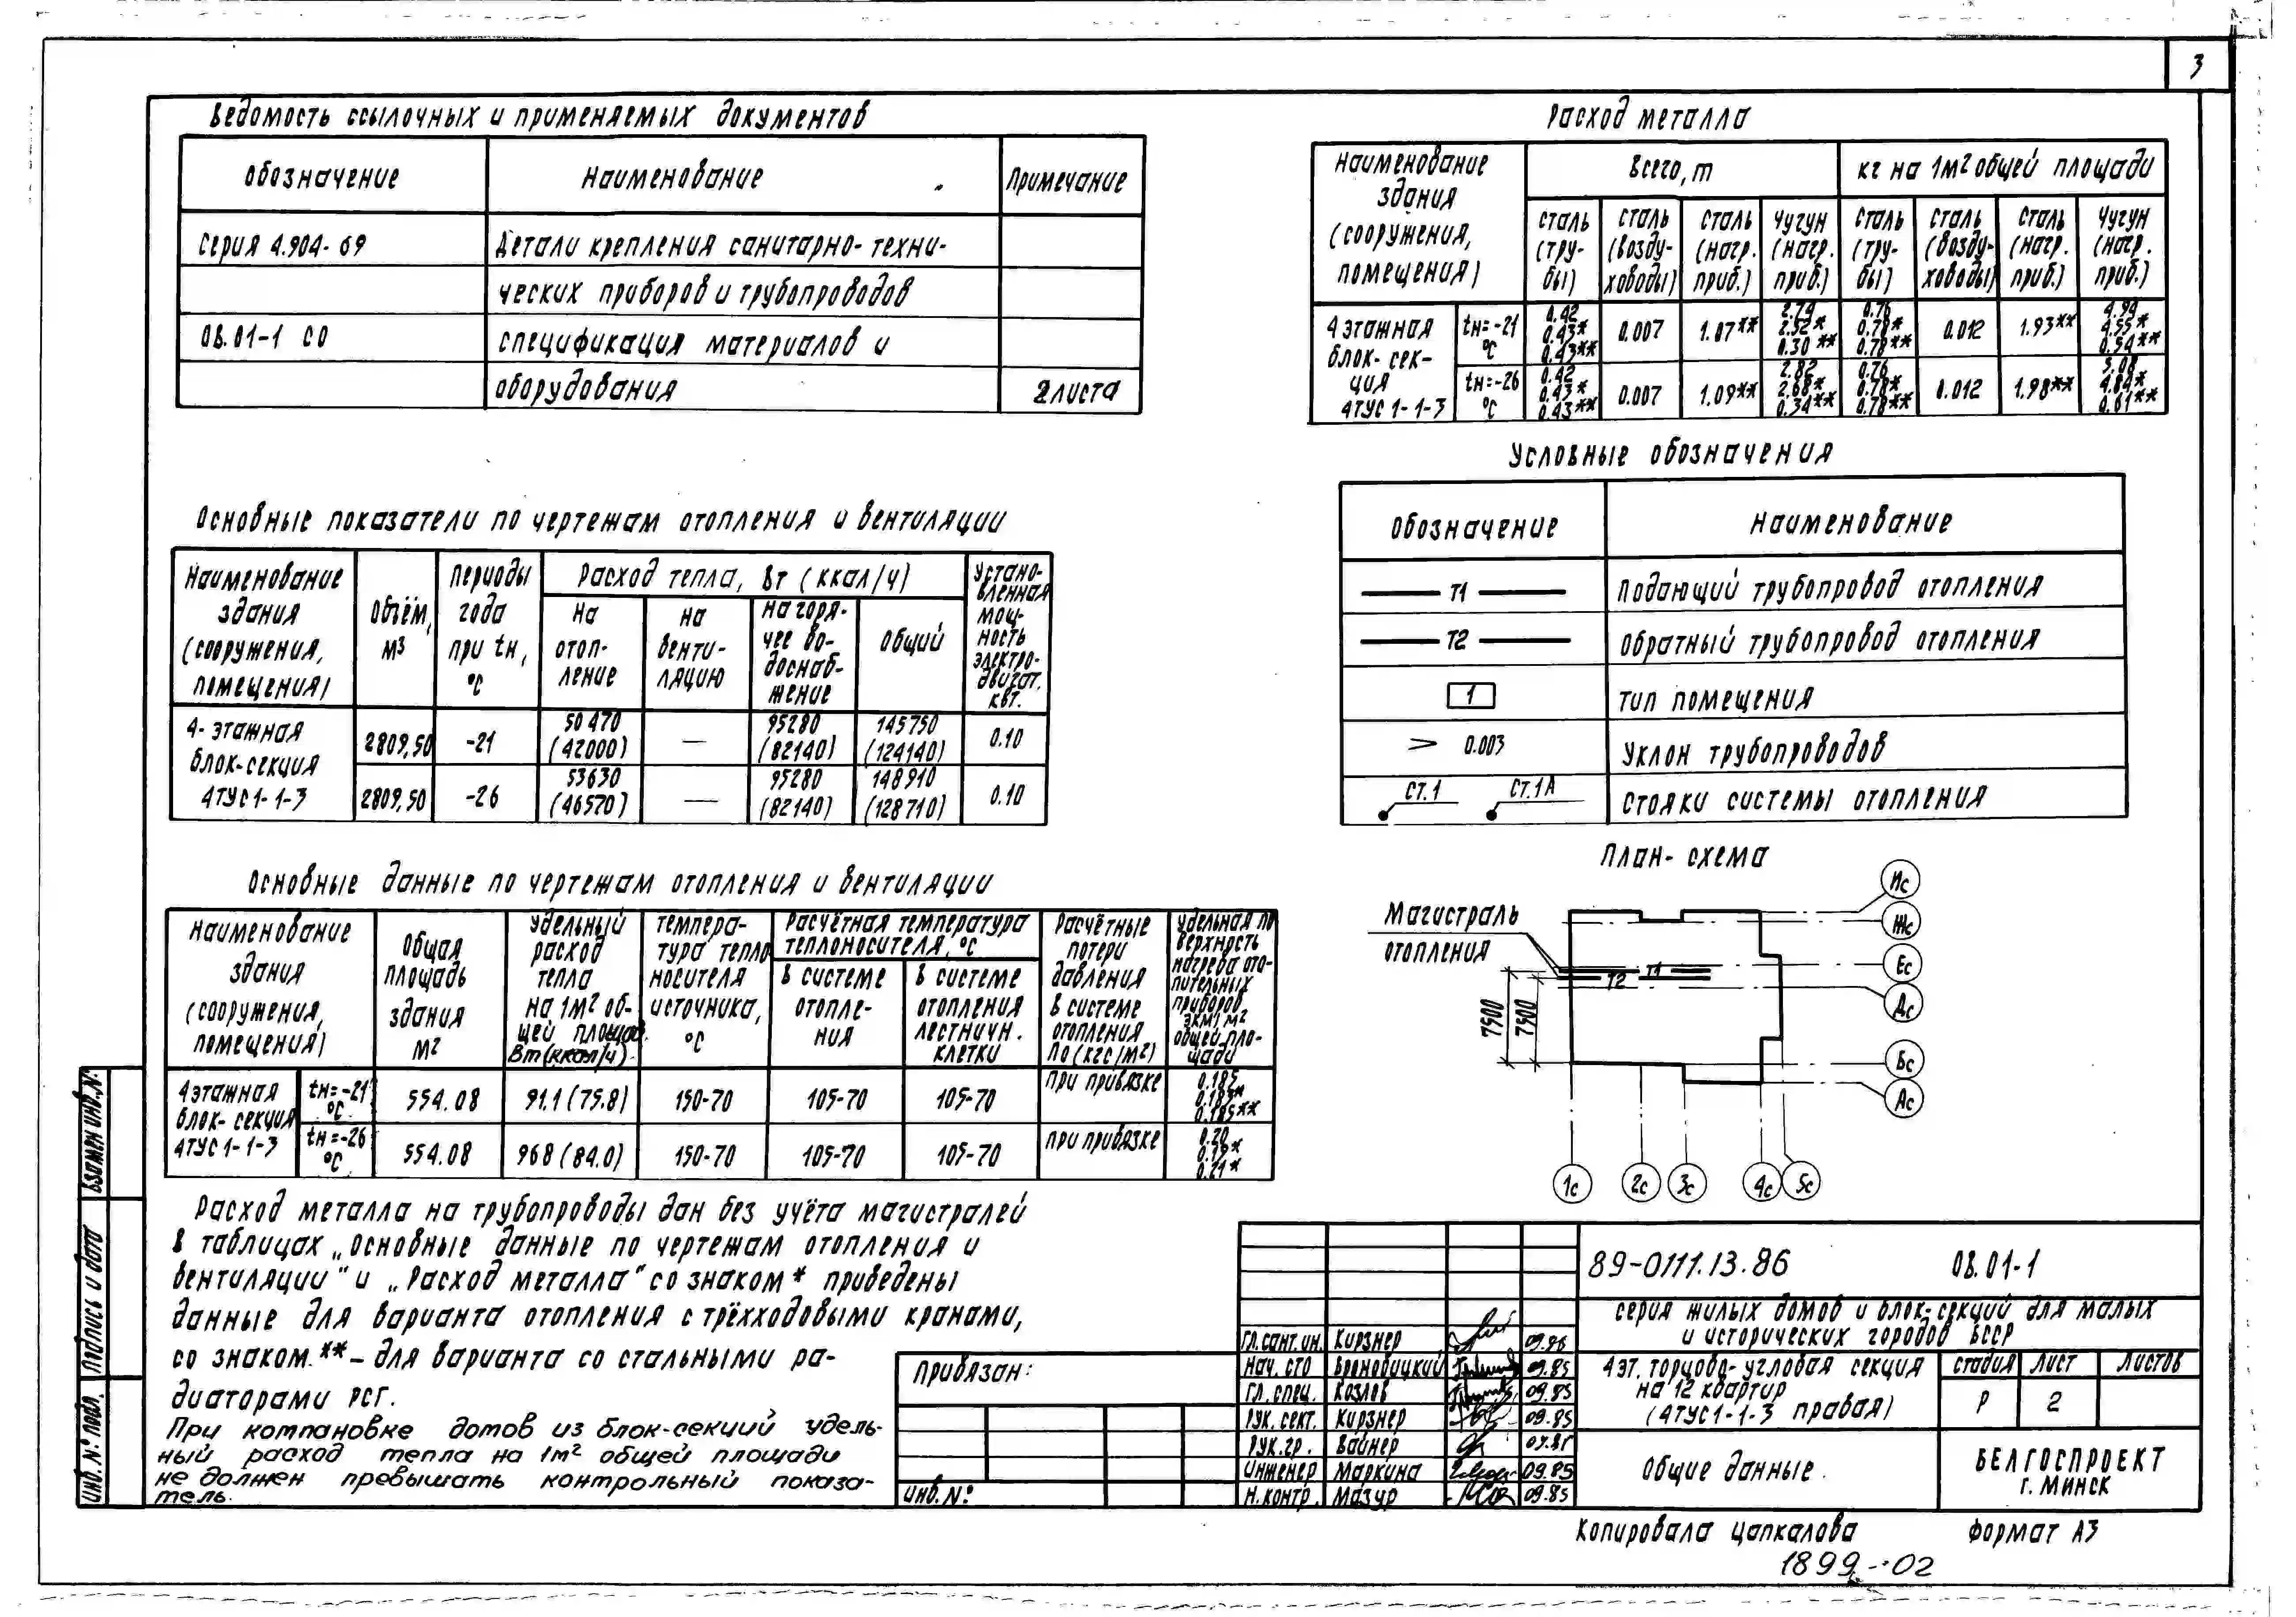 3
Ведомость ссылочных и применяемых документов
Обозначение Наименование Примечание
Серия 4.904-69 Детали крепления санитарно-техни-
ческих приборов и трубопроводов
ОВ.01-1 СО спецификация материалов и
оборудования 2 листа
Расход металла
Наименование здания (сооружения, помещения)
Всего, т
кг на 1м2 общей площади
сталь (тру-бы)
сталь (возду-ховоды)
сталь (нагр. приб.)
Чугун (нагр. приб.)
сталь (тру-бы)
сталь (возду-ховоды)
сталь (нагр. приб.)
Чугун (нагр. приб.)
4 этажная блок-сек-ция 4ТУС 1-1-3
tн=-21 °С
0.42 0.43* 0.43**
0.007
1.07**
2.74 2.52* 0.30**
0.76 0.78* 0.78**
0.012
1.93**
4.94 4.55* 0.54**
tн=-26 °С
0.42 0.43* 0.43**
0.007
1.09**
2.82 2.68* 0.34**
0.76 0.78* 0.78**
0.012
1.98**
5.08 4.84* 0.61**
Условные обозначения
Обозначение Наименование
Т1 Подающий трубопровод отопления
Т2 Обратный трубопровод отопления
1 Тип помещения
> 0.003 Уклон трубопроводов
СТ.1 СТ.1А Стояки системы отопления
Основные показатели по чертежам отопления и вентиляции
Наименование здания (сооружения, помещения)
Объём, м3
Периоды года при tн, °С
Расход тепла, Вт (ккал/ч)
на отоп-ление
на венти-ляцию
на горя-чее во-доснаб-жение
общий
Установленная мощ-ность электро-двигат. квт.
4-этажная блок-секция 4ТУС 1-1-3
2809,50 -21 50470 (42000) — 95280 (82140) 145750 (124140) 0.10
2809,50 -26 53630 (46570) — 95280 (82140) 148910 (128710) 0.10
Основные данные по чертежам отопления и вентиляции
Наименование здания (сооружения, помещения)
Общая площадь здания м2
Удельный расход тепла на 1м2 об-щей площад. Вт(ккал/ч)
Темпера-тура тепло-носителя источника, °С
Расчётная температура теплоносителя, °С
в системе отопле-ния
в системе отопления лестничн. клетки
Расчётные потери давления в системе отопления Па (кгс/м2)
Удельная по-верхность нагрева ото-пительных приборов ЭКМ/м2 общей пло-щади
4 этажная блок-секция 4ТУС 1-1-3
tн=-21 °С 554.08 91.1 (75.8) 150-70 105-70 105-70 при привязке 0.185**
tн=-26 °С 554.08 968 (84.0) 150-70 105-70 105-70 при привязке 0.20 0.19* 0.21*
Расход металла на трубопроводы дан без учёта магистралей
В таблицах „Основные данные по чертежам отопления и
вентиляции" и „Расход металла" со знаком * приведены
данные для варианта отопления с трёхходовыми кранами,
со знаком ** – для варианта со стальными ра-
диаторами РСГ.
При компановке домов из блок-секций удель-
ный расход тепла на 1м2 общей площади
не должен превышать контрольный показа-
тель.
План-схема
Магистраль
отопления
Т1
Т2
7500
7500
Ис
Жс
Ес
Дс
Бс
Ас
1с 2с 3с 4с 5с
Взамен инв.N:
Подпись и дата
Инв.N: подл.
Привязан:
инв. N:
Гл.сант.ин. Кирзнер 09.86
Нач. сто Броновицкий 09.85
Гл. спец. Козлов 09.85
Рук. сект. Кирзнер 09.85
Рук.гр. Вайнер
Инженер Маркина 09.85
Н.контр. Мазур 09.85
89-0111.13.86 ОВ.01-1
серия жилых домов и блок-секций для малых
и исторических городов БССР
4 эт. торцово-угловая секция
на 12 квартир
(4ТУС 1-1-3 правая)
стадия лист листов
Р 2
Общие данные.
БЕЛГОСПРОЕКТ
г. Минск
Копировала Цапкалова Формат А3
1899-02